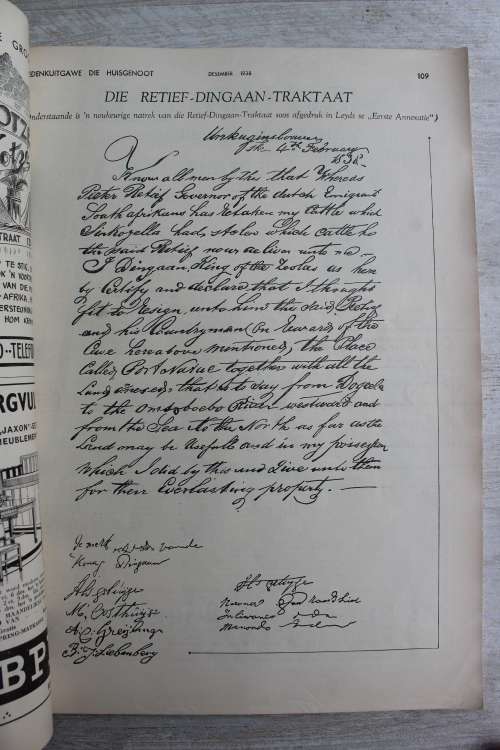 EDENKUITGAWE DIE HUISGENOOT DESEMBER 1938 109
DIE RETIEF-DINGAAN-TRAKTAAT
nderstaande is 'n noukeurige natrek van die Retief-Dingaan-Traktaat soos afgedruk in Leyds se „Eerste Annexatie")
the 4th February
1838
Know all men by this that Whereas
Pieter Retief Governor of the dutch Emigrant
South afrikans has retaken my Cattle which
Sinkoyella had stolen which Cattle he
the said Retief now deliver unto me —
I Dingaan, King of the Zoolas as here
by Certify and declare that I thought
fit to Resign unto him the said Retief
and his Countrymen (on Reward of the
Case hereabove mentioned) the Place
Called Port Natal together with all the
Land annexed, that is to say from Dogela
to the Omsoboebo River westward and
from the Sea to the North as far as the
Land may be Usefull and in my possession
Which I did by this and Give unto them
for their Everlasting property. —
De merk
Konig Dingaan
M. Oosthuyse
A.C. Greyling
B.J. Liebenberg
Nwara
Juliwane
Manondo
GRO
STRAAT
TE STIG
VAN DIE
-AFRIKA
ERSTEUNIN
HOM KEN
O--TELEF
RGVU
"JAXON"
MEUBLEMEN
VAN
BP